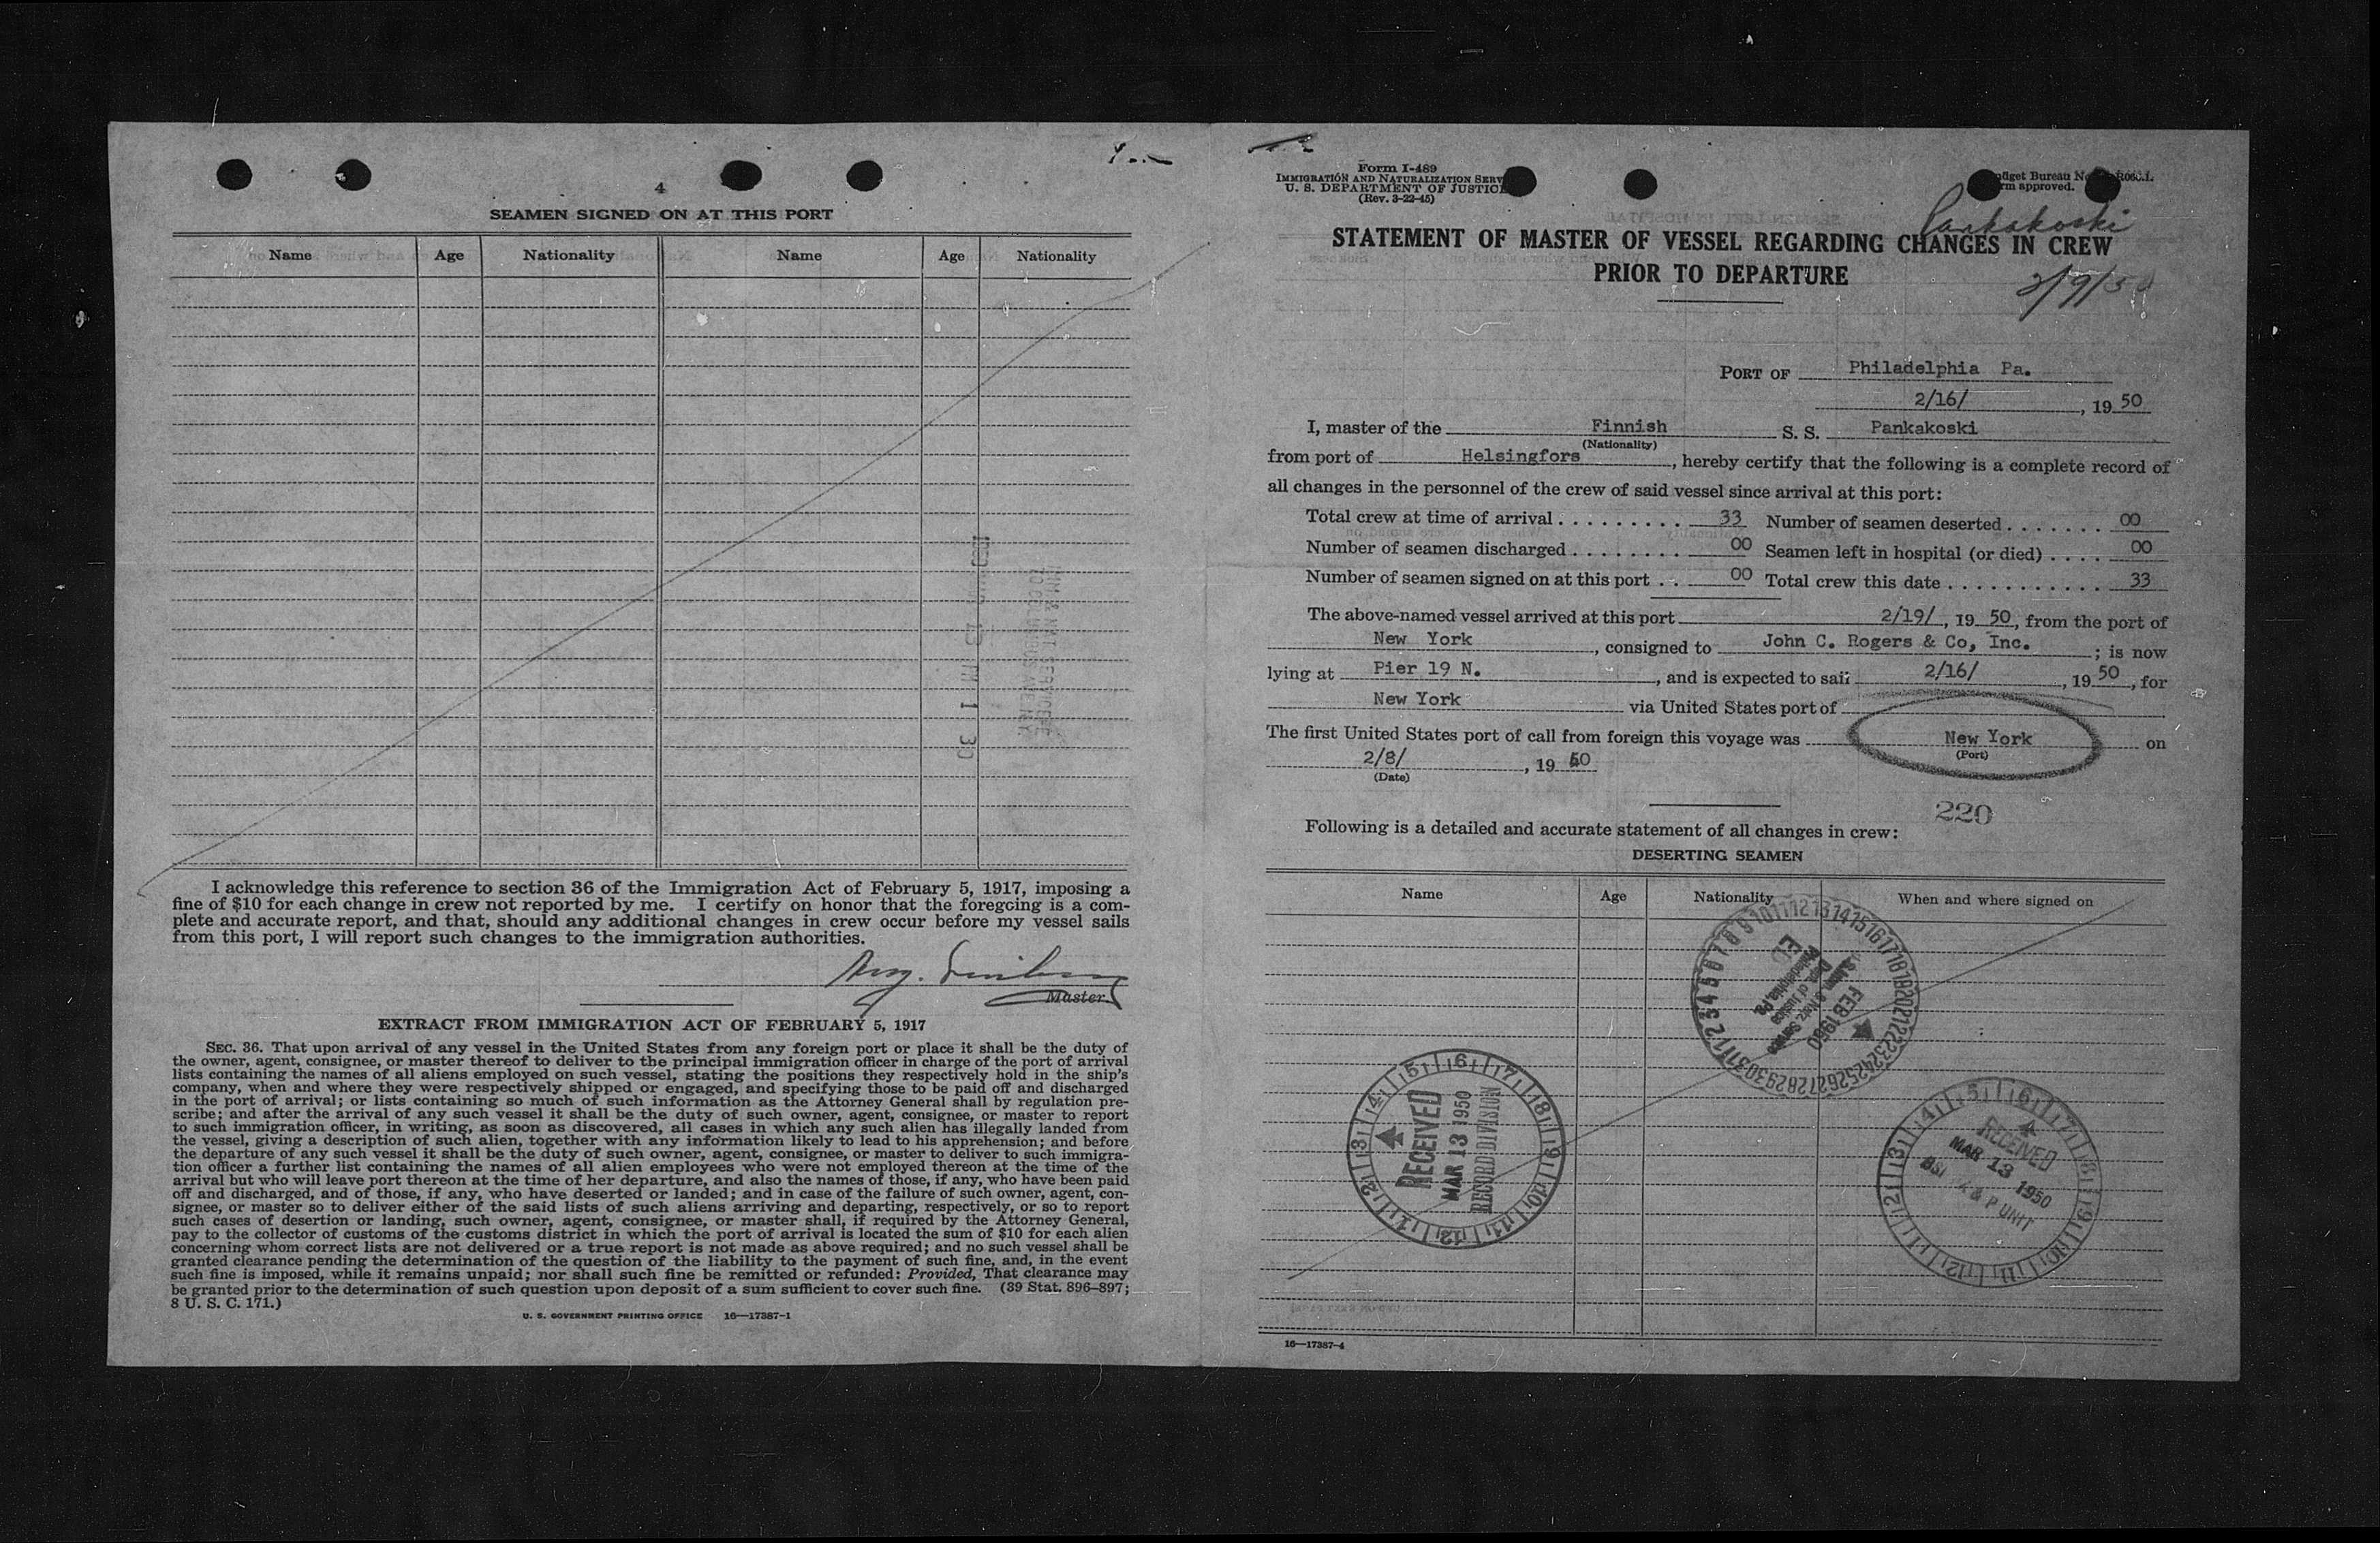 4
SEAMEN SIGNED ON AT THIS PORT
Name Age Nationality Name Age Nationality
I acknowledge this reference to section 36 of the Immigration Act of February 5, 1917, imposing a
fine of $10 for each change in crew not reported by me. I certify on honor that the foregoing is a com-
plete and accurate report, and that, should any additional changes in crew occur before my vessel sails
from this port, I will report such changes to the immigration authorities.
Master.
EXTRACT FROM IMMIGRATION ACT OF FEBRUARY 5, 1917
SEC. 36. That upon arrival of any vessel in the United States from any foreign port or place it shall be the duty of
the owner, agent, consignee, or master thereof to deliver to the principal immigration officer in charge of the port of arrival
lists containing the names of all aliens employed on such vessel, stating the positions they respectively hold in the ship's
company, when and where they were respectively shipped or engaged, and specifying those to be paid off and discharged
in the port of arrival; or lists containing so much of such information as the Attorney General shall by regulation pre-
scribe; and after the arrival of any such vessel it shall be the duty of such owner, agent, consignee, or master to report
to such immigration officer, in writing, as soon as discovered, all cases in which any such alien has illegally landed from
the vessel, giving a description of such alien, together with any information likely to lead to his apprehension; and before
the departure of any such vessel it shall be the duty of such owner, agent, consignee, or master to deliver to such immigra-
tion officer a further list containing the names of all alien employees who were not employed thereon at the time of the
arrival but who will leave port thereon at the time of her departure, and also the names of those, if any, who have been paid
off and discharged, and of those, if any, who have deserted or landed; and in case of the failure of such owner, agent, con-
signee, or master so to deliver either of the said lists of such aliens arriving and departing, respectively, or so to report
such cases of desertion or landing, such owner, agent, consignee, or master shall, if required by the Attorney General,
pay to the collector of customs of the customs district in which the port of arrival is located the sum of $10 for each alien
concerning whom correct lists are not delivered or a true report is not made as above required; and no such vessel shall be
granted clearance pending the determination of the question of the liability to the payment of such fine, and, in the event
such fine is imposed, while it remains unpaid; nor shall such fine be remitted or refunded: Provided, That clearance may
be granted prior to the determination of such question upon deposit of a sum sufficient to cover such fine. (39 Stat. 896-897;
8 U. S. C. 171.)
U. S. GOVERNMENT PRINTING OFFICE 16—17387-1
Form I-489
IMMIGRATION AND NATURALIZATION
U. S. DEPARTMENT OF JUSTICE
(Rev. 3-22-45)
Budget Bureau
approved.
Pankakoski
STATEMENT OF MASTER OF VESSEL REGARDING CHANGES IN CREW
PRIOR TO DEPARTURE
2/9/50
PORT OF Philadelphia Pa.
2/16/, 19 50
I, master of the Finnish S. S. Pankakoski
(Nationality)
from port of Helsingfors, hereby certify that the following is a complete record of
all changes in the personnel of the crew of said vessel since arrival at this port:
Total crew at time of arrival . . . . . . . . . 33 Number of seamen deserted . . . . . . . 00
Number of seamen discharged . . . . . . . . 00 Seamen left in hospital (or died) . . . . 00
Number of seamen signed on at this port . . 00 Total crew this date . . . . . . . . . . . . 33
The above-named vessel arrived at this port 2/19/, 19 50, from the port of
New York, consigned to John C. Rogers & Co, Inc.; is now
lying at Pier 19 N., and is expected to sail 2/16/, 19 50, for
New York via United States port of
The first United States port of call from foreign this voyage was New York on
(Port)
2/8/, 19 50
(Date)
220
Following is a detailed and accurate statement of all changes in crew:
DESERTING SEAMEN
Name Age Nationality When and where signed on
FEB 1950
RECEIVED
MAR 13 1950
RECORD DIVISION
RECEIVED
MAR 13 1950
& P UNIT
16—17387-4